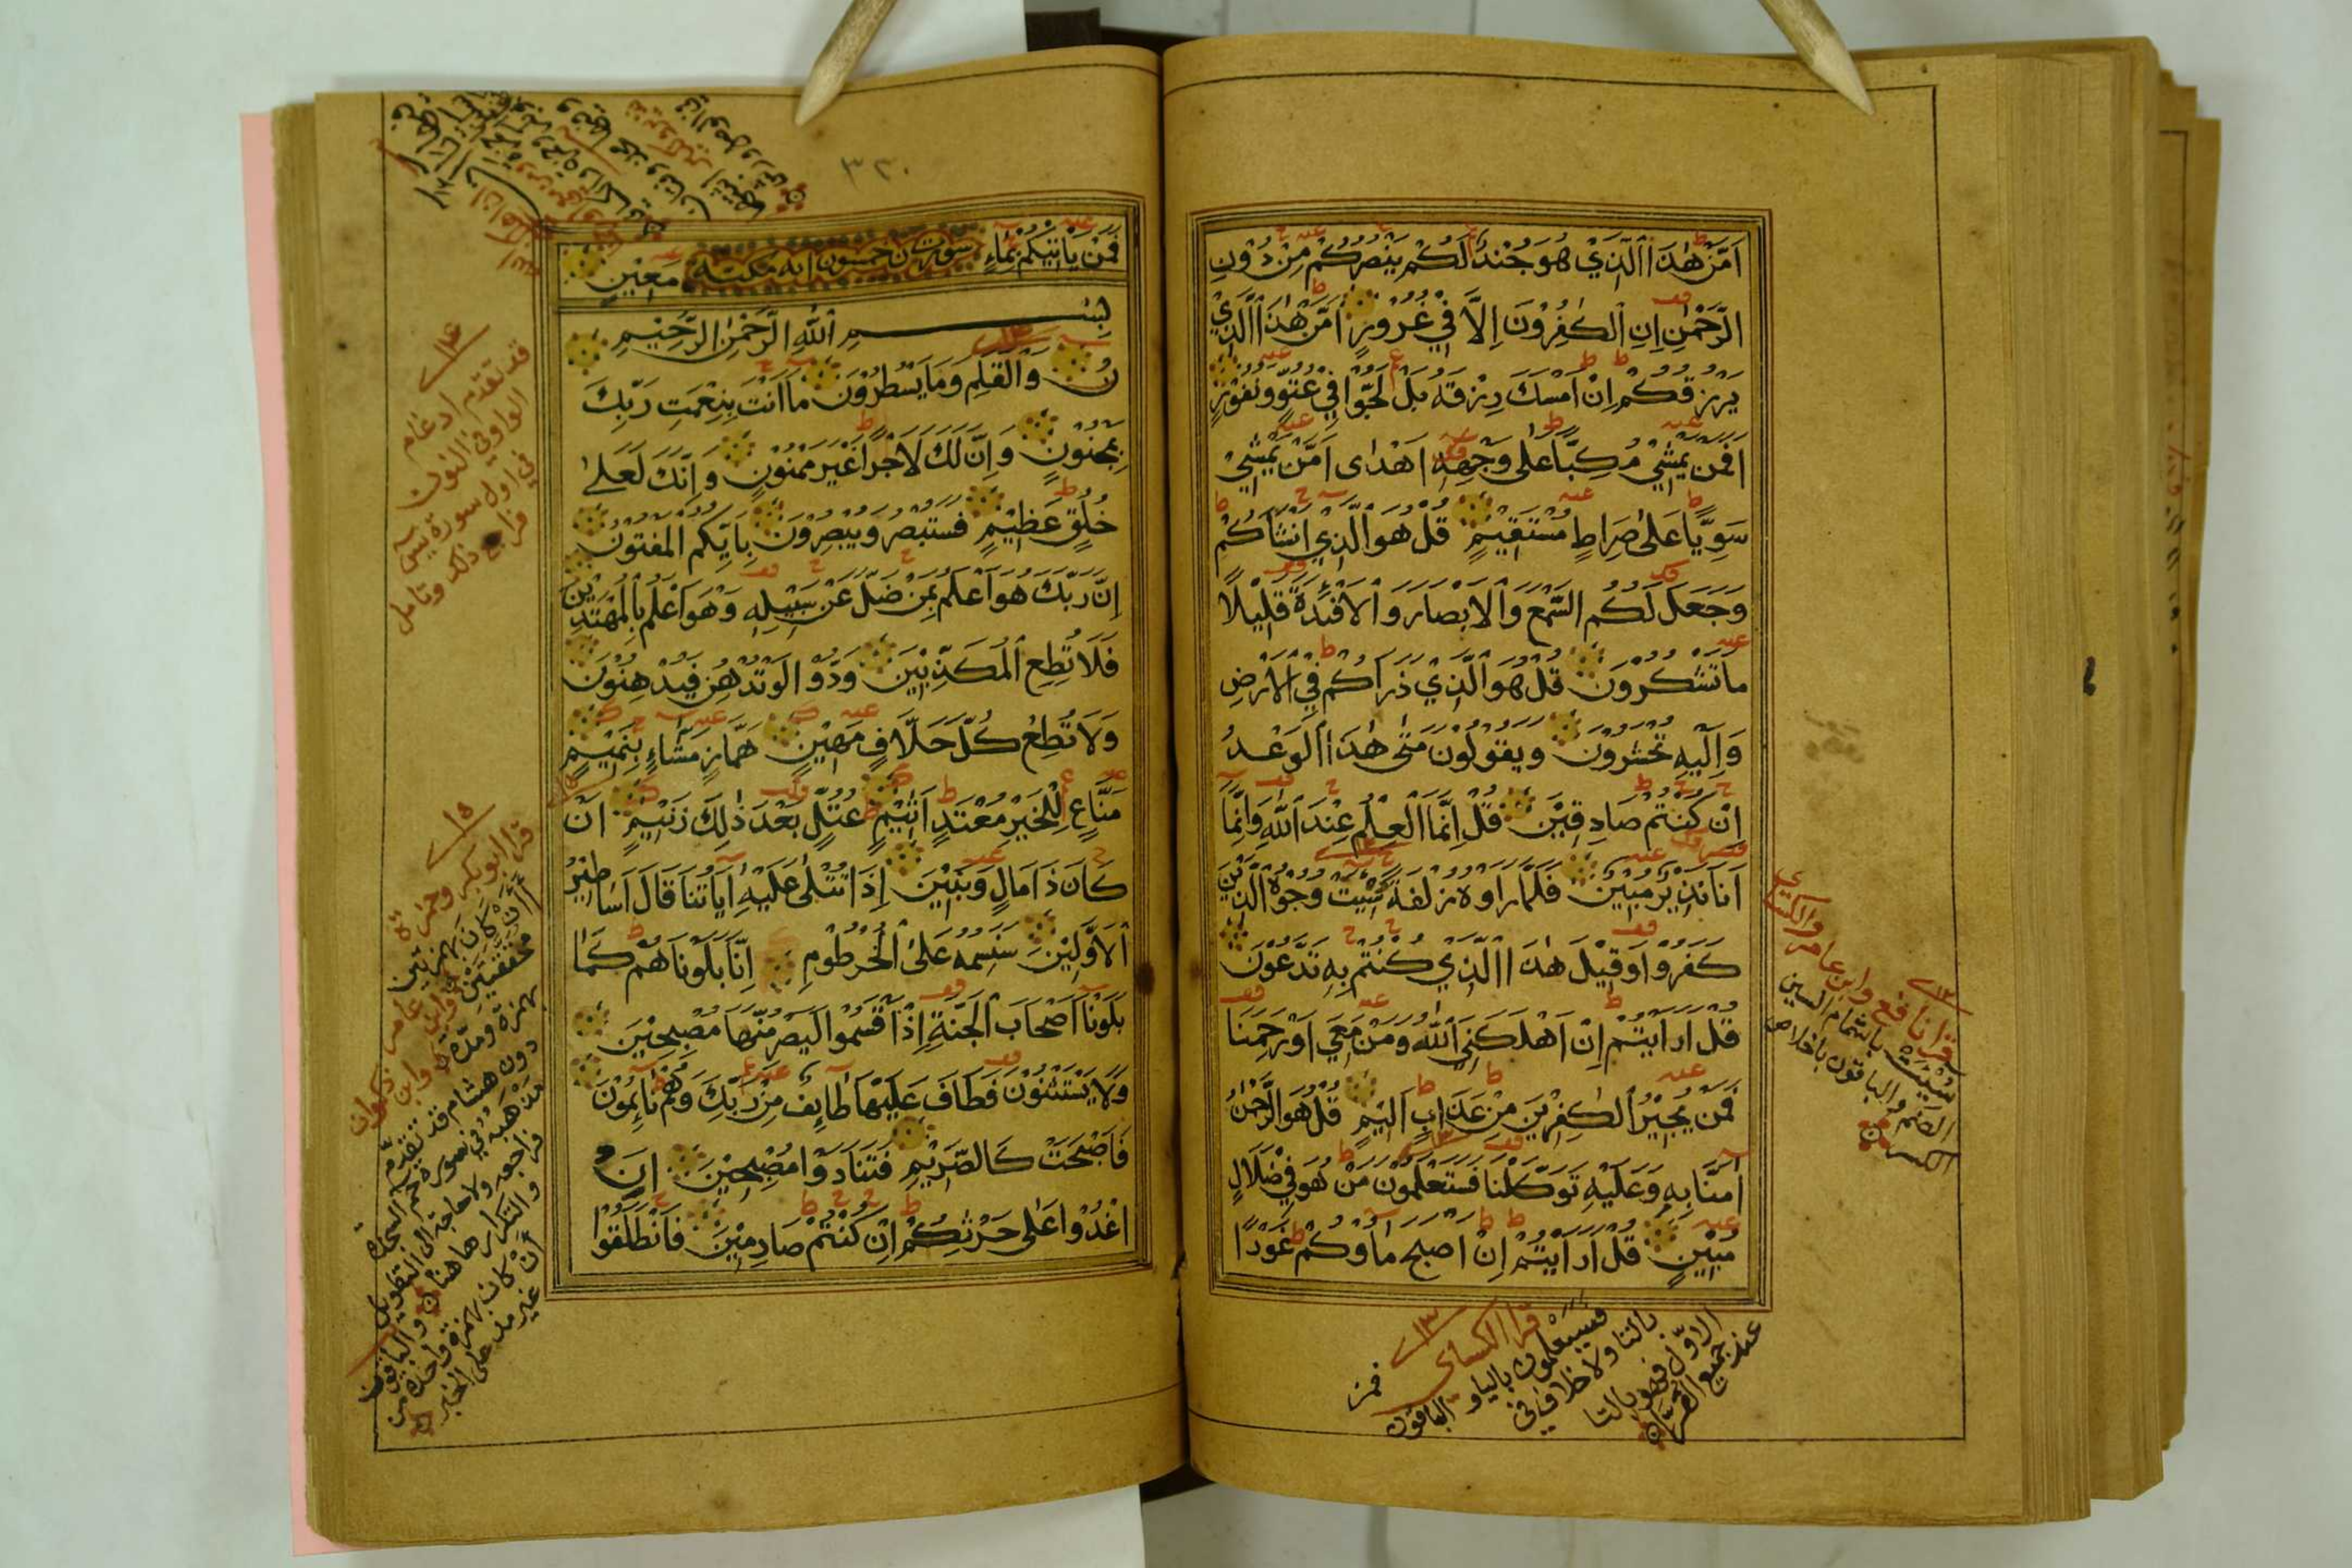 اَمَّنْ هٰذَا الَّذِيْ هُوَ جُنْدٌ لَكُمْ يَنْصُرُكُمْ مِنْ دُوْنِ
الرَّحْمٰنِ اِنِ الْكٰفِرُوْنَ اِلَّا فِيْ غُرُوْرٍ اَمَّنْ هٰذَا الَّذِيْ
يَرْزُقُكُمْ اِنْ اَمْسَكَ رِزْقَهُ بَلْ لَجُّوْا فِيْ عُتُوٍّ وَنُفُوْرٍ
اَفَمَنْ يَمْشِيْ مُكِبًّا عَلٰى وَجْهِهِ اَهْدٰى اَمَّنْ يَمْشِيْ
سَوِيًّا عَلٰى صِرَاطٍ مُسْتَقِيْمٍ قُلْ هُوَ الَّذِيْ اَنْشَاَكُمْ
وَجَعَلَ لَكُمُ السَّمْعَ وَالْاَبْصَارَ وَالْاَفْئِدَةَ قَلِيْلًا
مَا تَشْكُرُوْنَ قُلْ هُوَ الَّذِيْ ذَرَاَكُمْ فِي الْاَرْضِ
وَاِلَيْهِ تُحْشَرُوْنَ وَيَقُوْلُوْنَ مَتٰى هٰذَا الْوَعْدُ
اِنْ كُنْتُمْ صَادِقِيْنَ قُلْ اِنَّمَا الْعِلْمُ عِنْدَ اللّٰهِ وَاِنَّمَا
اَنَا نَذِيْرٌ مُبِيْنٌ فَلَمَّا رَاَوْهُ زُلْفَةً سِيْئَتْ وُجُوْهُ الَّذِيْنَ
كَفَرُوْا وَقِيْلَ هٰذَا الَّذِيْ كُنْتُمْ بِهِ تَدَّعُوْنَ
قُلْ اَرَاَيْتُمْ اِنْ اَهْلَكَنِيَ اللّٰهُ وَمَنْ مَعِيَ اَوْ رَحِمَنَا
فَمَنْ يُجِيْرُ الْكٰفِرِيْنَ مِنْ عَذَابٍ اَلِيْمٍ قُلْ هُوَ الرَّحْمٰنُ
اٰمَنَّا بِهِ وَعَلَيْهِ تَوَكَّلْنَا فَسَتَعْلَمُوْنَ مَنْ هُوَ فِيْ ضَلَالٍ
مُبِيْنٍ قُلْ اَرَاَيْتُمْ اِنْ اَصْبَحَ مَاؤُكُمْ غَوْرًا
قرا نافع وابن عامر والكسائي
سيئت باشمام السين
الضم والباقون باخلاص
الكسر
قرا الكسائي
فسيعلمون باليا والباقون
بالتا ولا خلاف في
الاول فهو بالتا
عند جميع القراء
فمن
٣٢٠
فَمَنْ يَاْتِيْكُمْ بِمَاءٍ مَعِيْنٍ
سورة ن خمسون اية مكية
بِسْمِ اللّٰهِ الرَّحْمٰنِ الرَّحِيْمِ
نٓ وَالْقَلَمِ وَمَا يَسْطُرُوْنَ مَا اَنْتَ بِنِعْمَتِ رَبِّكَ
بِمَجْنُوْنٍ وَاِنَّ لَكَ لَاَجْرًا غَيْرَ مَمْنُوْنٍ وَاِنَّكَ لَعَلٰى
خُلُقٍ عَظِيْمٍ فَسَتُبْصِرُ وَيُبْصِرُوْنَ بِاَيِّكُمُ الْمَفْتُوْنُ
اِنَّ رَبَّكَ هُوَ اَعْلَمُ بِمَنْ ضَلَّ عَنْ سَبِيْلِهِ وَهُوَ اَعْلَمُ بِالْمُهْتَدِيْنَ
فَلَا تُطِعِ الْمُكَذِّبِيْنَ وَدُّوْا لَوْ تُدْهِنُ فَيُدْهِنُوْنَ
وَلَا تُطِعْ كُلَّ حَلَّافٍ مَهِيْنٍ هَمَّازٍ مَشَّاءٍ بِنَمِيْمٍ
مَنَّاعٍ لِلْخَيْرِ مُعْتَدٍ اَثِيْمٍ عُتُلٍّ بَعْدَ ذٰلِكَ زَنِيْمٍ اَنْ
كَانَ ذَا مَالٍ وَبَنِيْنَ اِذَا تُتْلٰى عَلَيْهِ اٰيَاتُنَا قَالَ اَسَاطِيْرُ
الْاَوَّلِيْنَ سَنَسِمُهُ عَلَى الْخُرْطُوْمِ اِنَّا بَلَوْنَاهُمْ كَمَا
بَلَوْنَا اَصْحَابَ الْجَنَّةِ اِذْ اَقْسَمُوْا لَيَصْرِمُنَّهَا مُصْبِحِيْنَ
وَلَا يَسْتَثْنُوْنَ فَطَافَ عَلَيْهَا طَائِفٌ مِنْ رَبِّكَ وَهُمْ نَائِمُوْنَ
فَاَصْبَحَتْ كَالصَّرِيْمِ فَتَنَادَوْا مُصْبِحِيْنَ اَنِ
اغْدُوْا عَلٰى حَرْثِكُمْ اِنْ كُنْتُمْ صَارِمِيْنَ فَانْطَلَقُوْا
قد تقدم ادغام
الواو في النون
في اول سورة يس
فراجع ذلك وتامل
قرا ابو بكر وحمزة
أأن كان بهمزتين
محققتين وابن عامر
بهمزة ومدة وابن ذكوان
دون هشام قد تقدم
مذهبه في سورة حم السجدة
فراجعه ولا حاجة الى التطويل
والتكرار هاهنا والباقون
أن كان بهمزة واحدة من
غير مد على الخبر